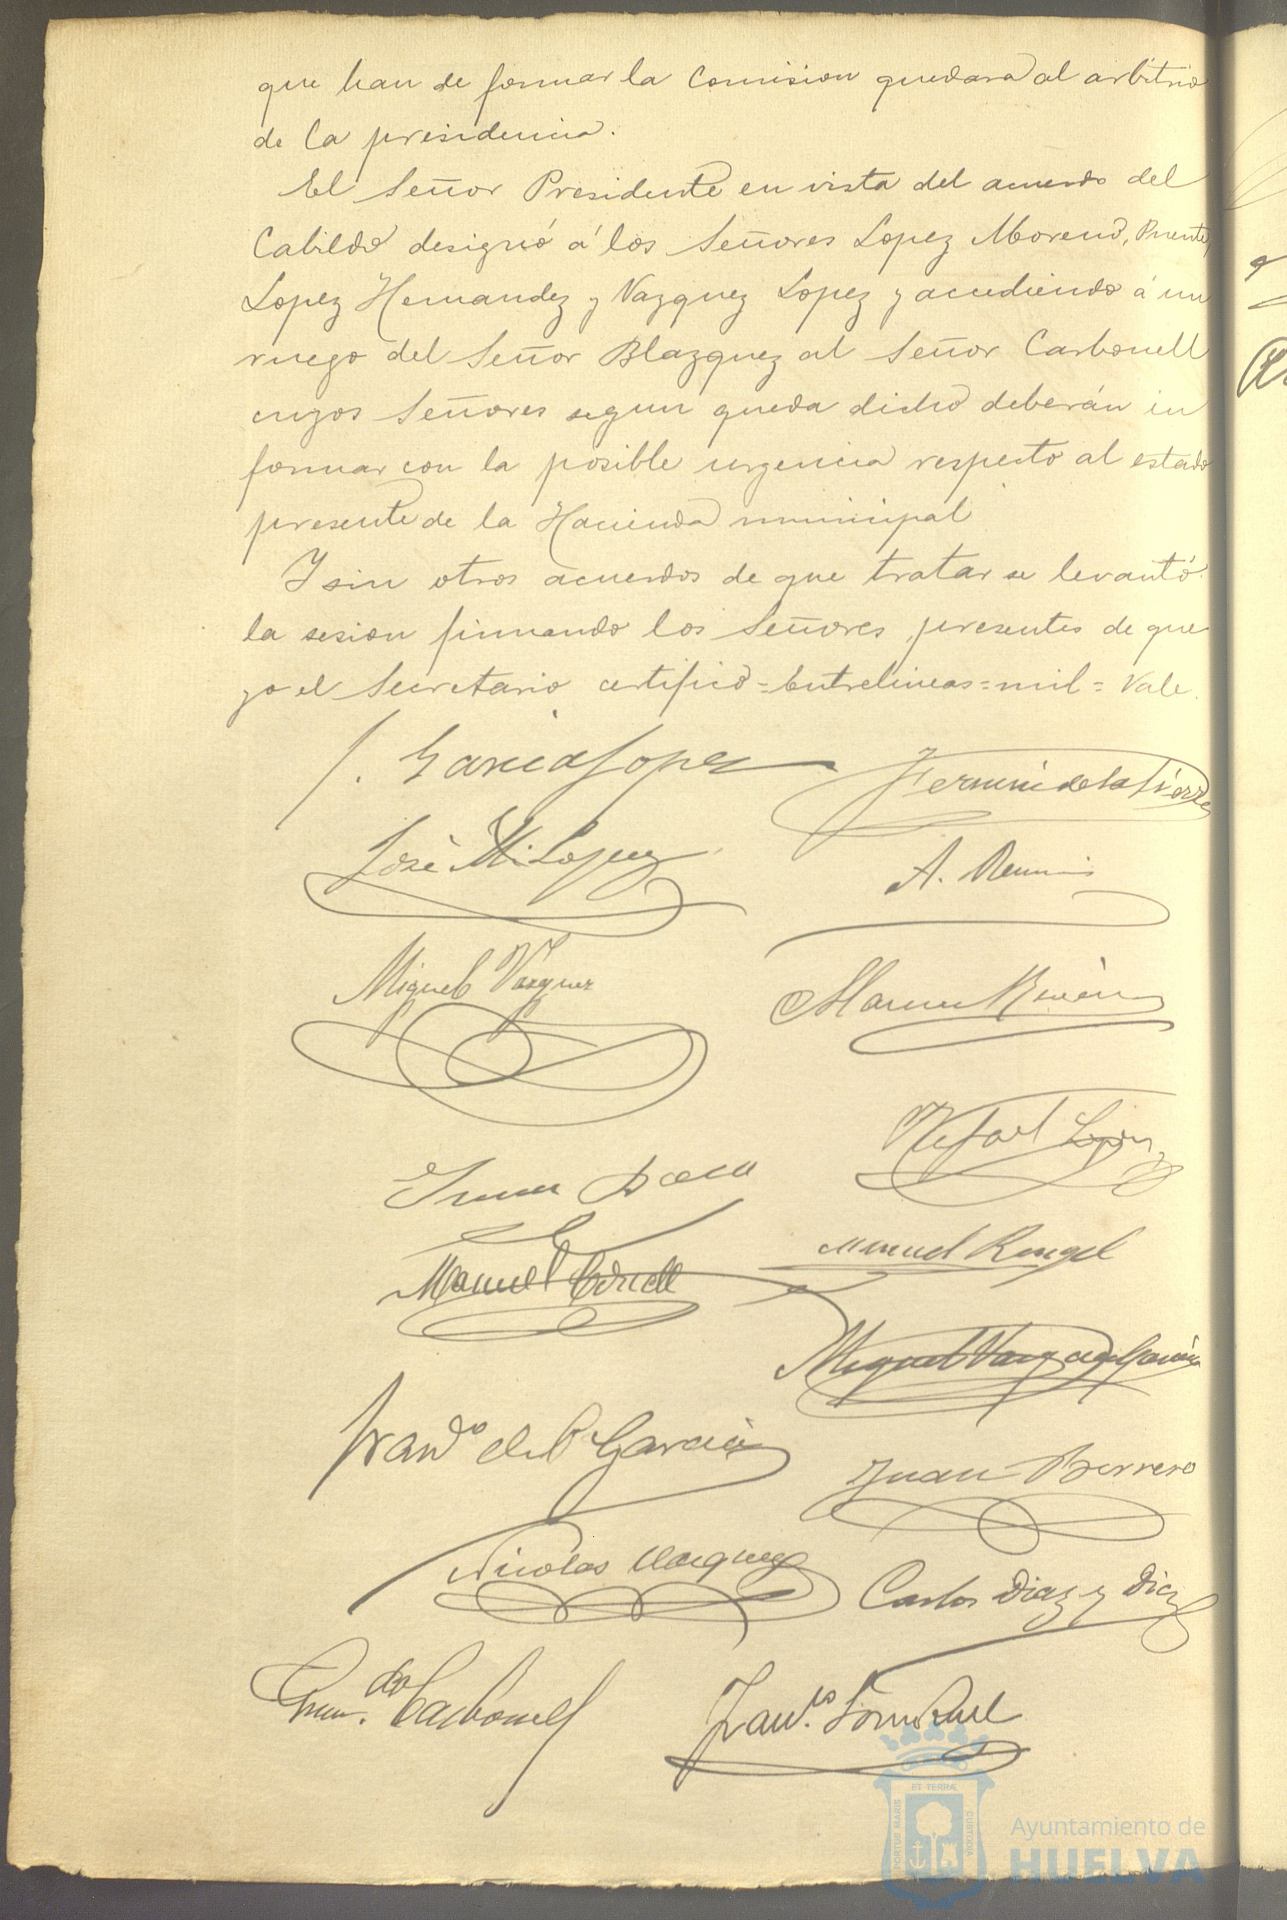 que han de formar la Comision quedara al arbitrio
de la presidencia.
El Señor Presidente en vista del acuerdo del
Cabildo designó á los Señores Lopez Moreno, Puente,
Lopez Hernandez y Vazquez Lopez y accediendo á un
ruego del Señor Blazquez al Señor Carbonell
cuyos Señores segun queda dicho deberán in
formar con la posible urgencia respecto al estado
presente de la Hacienda municipal
Y sin otros acuerdos de que tratar se levantó
la sesion firmando los Señores presentes de que
yo el Secretario certifico = Entrelineas = mil = Vale.
J. Garcia Lopez
Fermin de la Sierra
José M. Lopez
A.
Miguel Vazquez
Manuel
Rafael Lopez
Manuel Rengel
Manuel
Miguel Vazquez Garcia
Franco de P Garcia
Juan Borrero
Nicolás Vazquez
Carlos Diaz y Diaz
Carbonell
PORTUS MARIS
ET TERRÆ
CUSTODIA
Ayuntamiento de
HUELVA